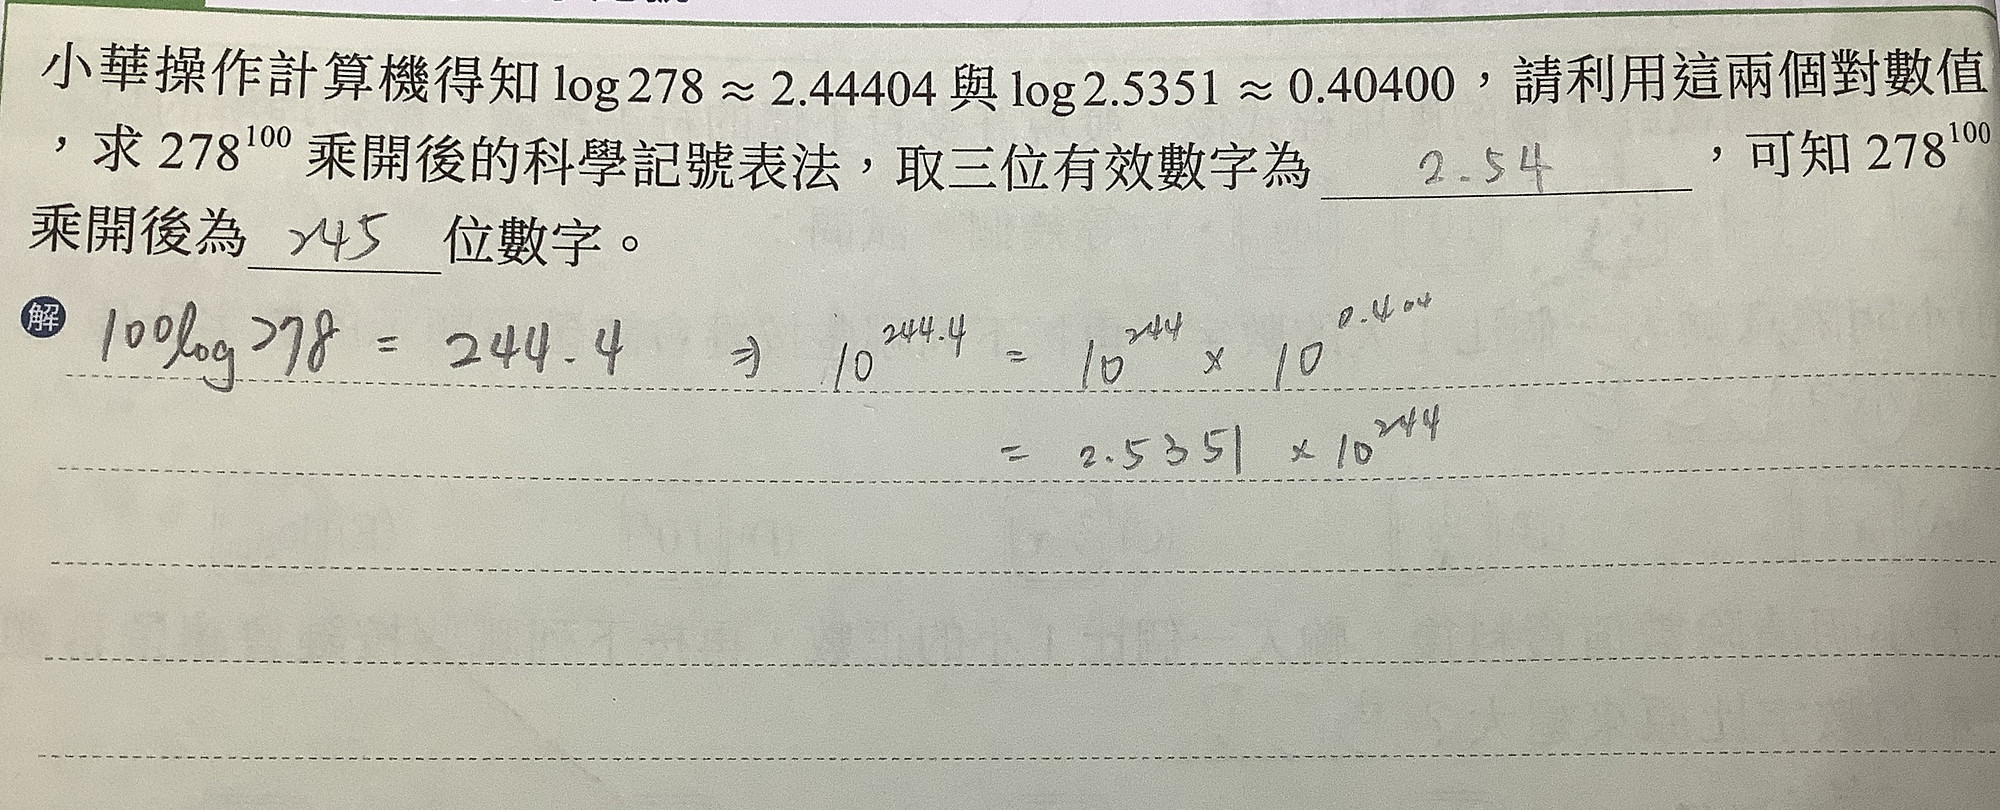 小華操作計算機得知 log 278 ≈ 2.44404 與 log 2.5351 ≈ 0.40400，請利用這兩個對數值
，求 278¹⁰⁰ 乘開後的科學記號表法，取三位有效數字為 2.54 ，可知 278¹⁰⁰
乘開後為 245 位數字。
解 100log278 = 244.4 ⇒ 10^244.4 = 10^244 × 10^0.404
= 2.5351 × 10^244